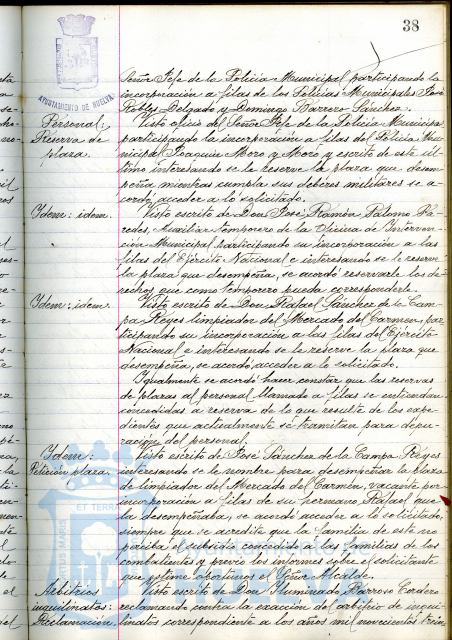 38
AYUNTAMIENTO DE HUELVA
Señor Jefe de la Policía Municipal participando la
incorporación a filas de los Policías Municipales José
Robles Delgado y Domingo Barrero Sánchez.
Personal:
Reserva de
plaza.
Visto oficio del Señor Jefe de la Policía Municipal
participando la incorporación a filas del Policía Mu-
nicipal Joaquín Moro y Moro y escrito de este úl-
timo interesando se le reserve la plaza que desem-
peña mientras cumpla sus deberes militares se a-
cordó acceder a lo solicitado.
Idem: idem.
Visto escrito de Don José Ramón Palomo Pa-
redes, Auxiliar temporero de la Oficina de Interven-
ción Municipal participando su incorporación a las
filas del Ejército Nacional e interesando se le reserve
la plaza que desempeña, se acordó reservarle los de-
rechos que como temporero pueda corresponderle.
Idem: idem.
Visto escrito de Don Rafael Sánchez de la Cam-
pa Reyes limpiador del Mercado del Carmen, par-
ticipando su incorporación a las filas del Ejército
Nacional e interesando se le reserve la plaza que
desempeña, se acordó acceder a lo solicitado.
Igualmente se acordó hacer constar que las reservas
de plazas al personal llamado a filas se entiendan
concedidas a reserva de lo que resulte de los expe-
dientes que actualmente se tramitan para depu-
ración del personal.
Idem:
Petición plaza.
Visto escrito de José Sánchez de la Campa Reyes
interesando se le nombre para desempeñar la plaza
de limpiador del Mercado del Carmen, vacante por
incorporación a filas de su hermano Rafael que
la desempeñaba, se acordó acceder a lo solicitado,
siempre que se acredite que la familia de este no
perciba el subsidio concedido a las familias de los
combatientes y previo los informes sobre el solicitante
que estime oportunos el Señor Alcalde.
Arbitrios
inquilinatos:
Reclamación.
Visto escrito de Don Iluminado Barroso Cordero
reclamando contra la exacción del arbitrio de inqui-
linatos correspondiente a los años mil novecientos trein